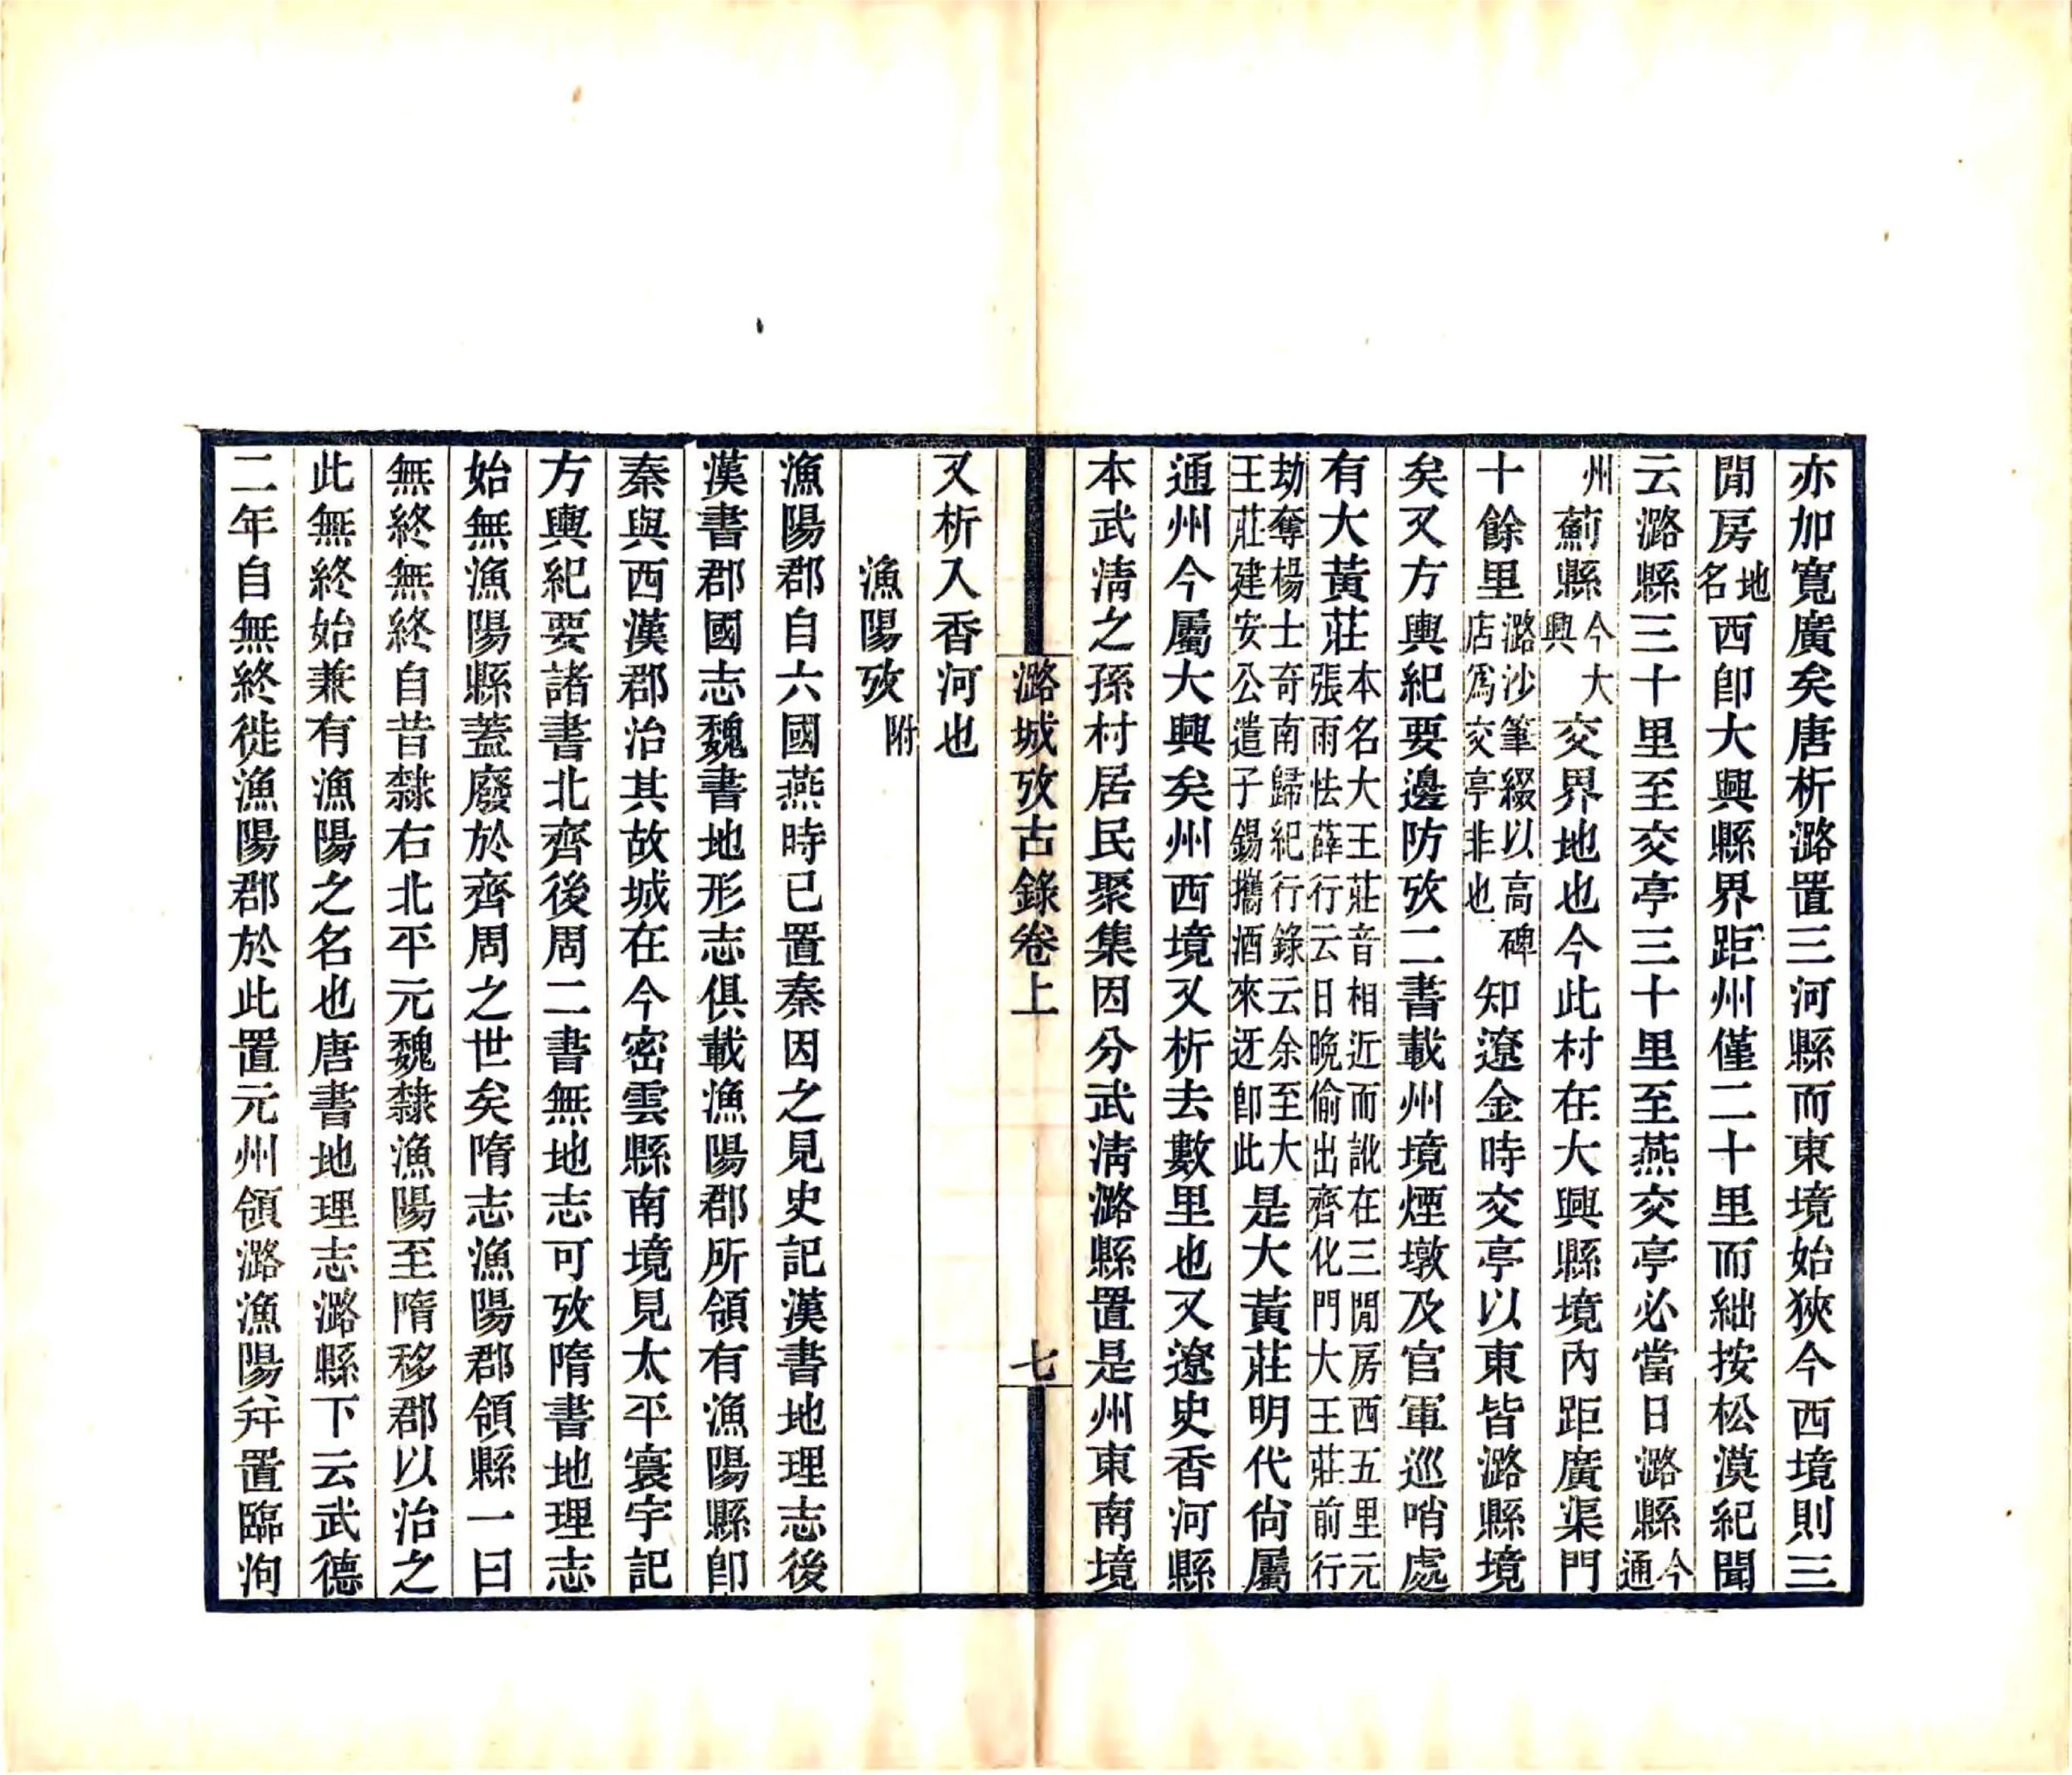 亦加寬廣矣唐析潞置三河縣而東境始狹今西境則三
閒房地名西卽大興縣界距州僅二十里而絀按松漠紀聞
云潞縣三十里至交亭三十里至燕交亭必當日潞縣今通
州薊縣今大興交界地也今此村在大興縣境內距廣渠門
十餘里潞沙筆綴以高碑店爲交亭非也知遼金時交亭以東皆潞縣境
矣又方輿紀要邊防攷二書載州境煙墩及官軍巡哨處
有大黃莊本名大王莊音相近而訛在三閒房西五里元張雨怯薛行云日晚偷出齊化門大王莊前行
劫奪楊士奇南歸紀行錄云余至大王莊建安公遣子錫攜酒來迓卽此是大黃莊明代尙屬
通州今屬大興矣州西境又析去數里也又遼史香河縣
本武淸之孫村居民聚集因分武淸潞縣置是州東南境
潞城攷古錄卷上
七
又析入香河也
漁陽攷附
漁陽郡自六國燕時已置秦因之見史記漢書地理志後
漢書郡國志魏書地形志俱載漁陽郡所領有漁陽縣卽
秦與西漢郡治其故城在今密雲縣南境見太平寰宇記
方輿紀要諸書北齊後周二書無地志可攷隋書地理志
始無漁陽縣蓋廢於齊周之世矣隋志漁陽郡領縣一曰
無終無終自昔隸右北平元魏隸漁陽至隋移郡以治之
此無終始兼有漁陽之名也唐書地理志潞縣下云武德
二年自無終徙漁陽郡於此置元州領潞漁陽幷置臨泃